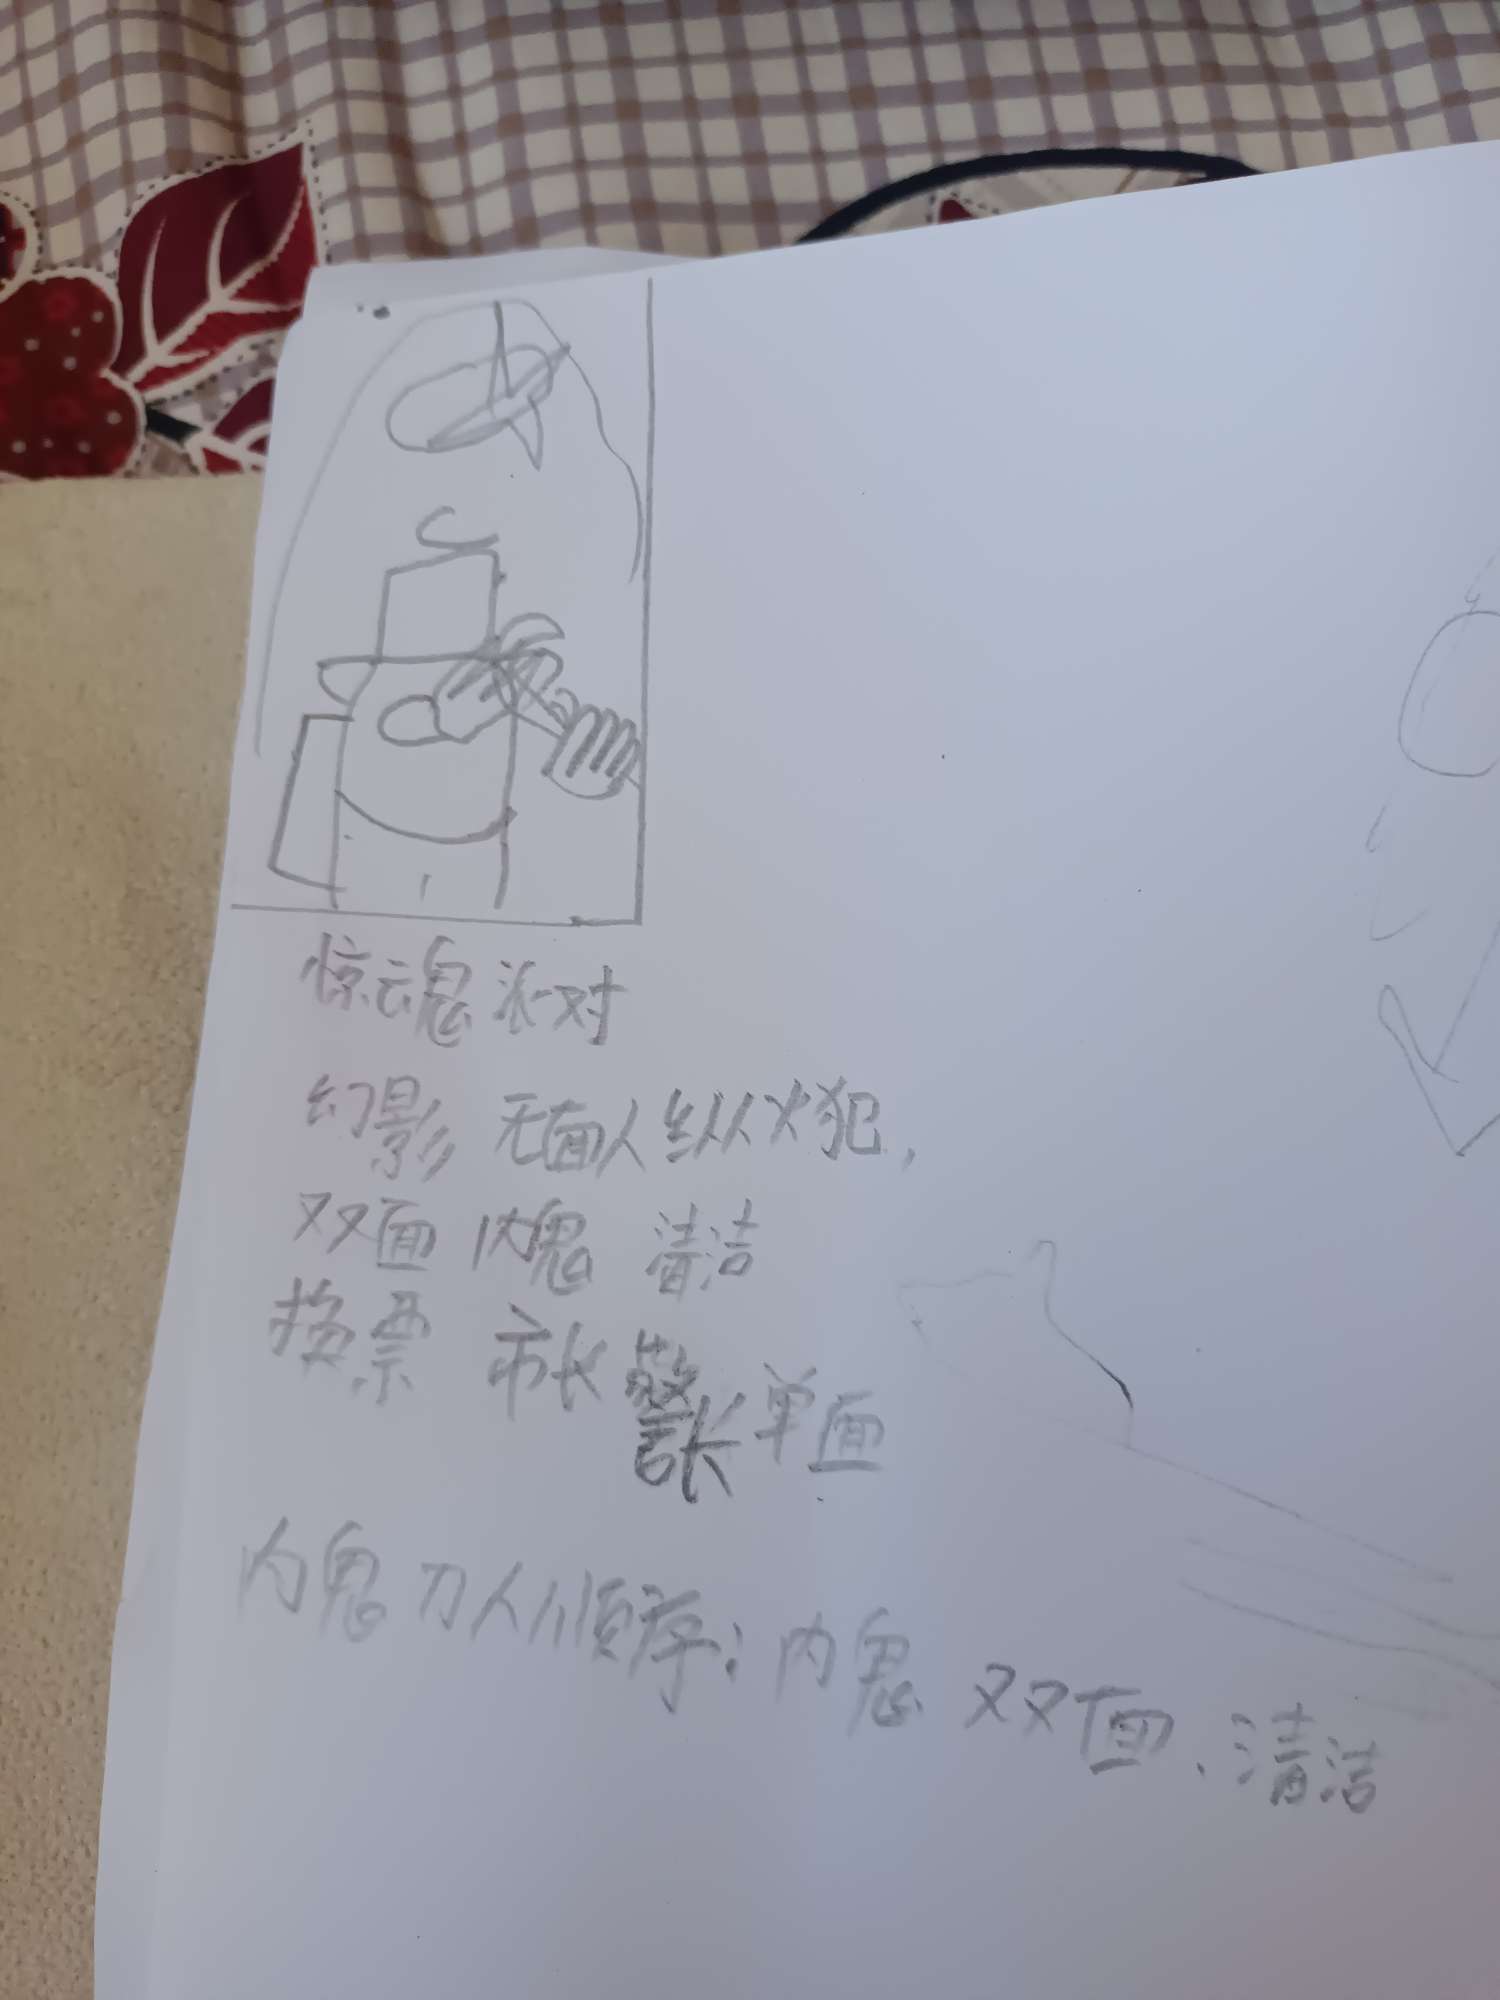 惊魂派对
幻影 无面人纵火犯,
双面 内鬼 清洁
换票 市长 警长 单面
内鬼刀人顺序: 内鬼 双面、清洁